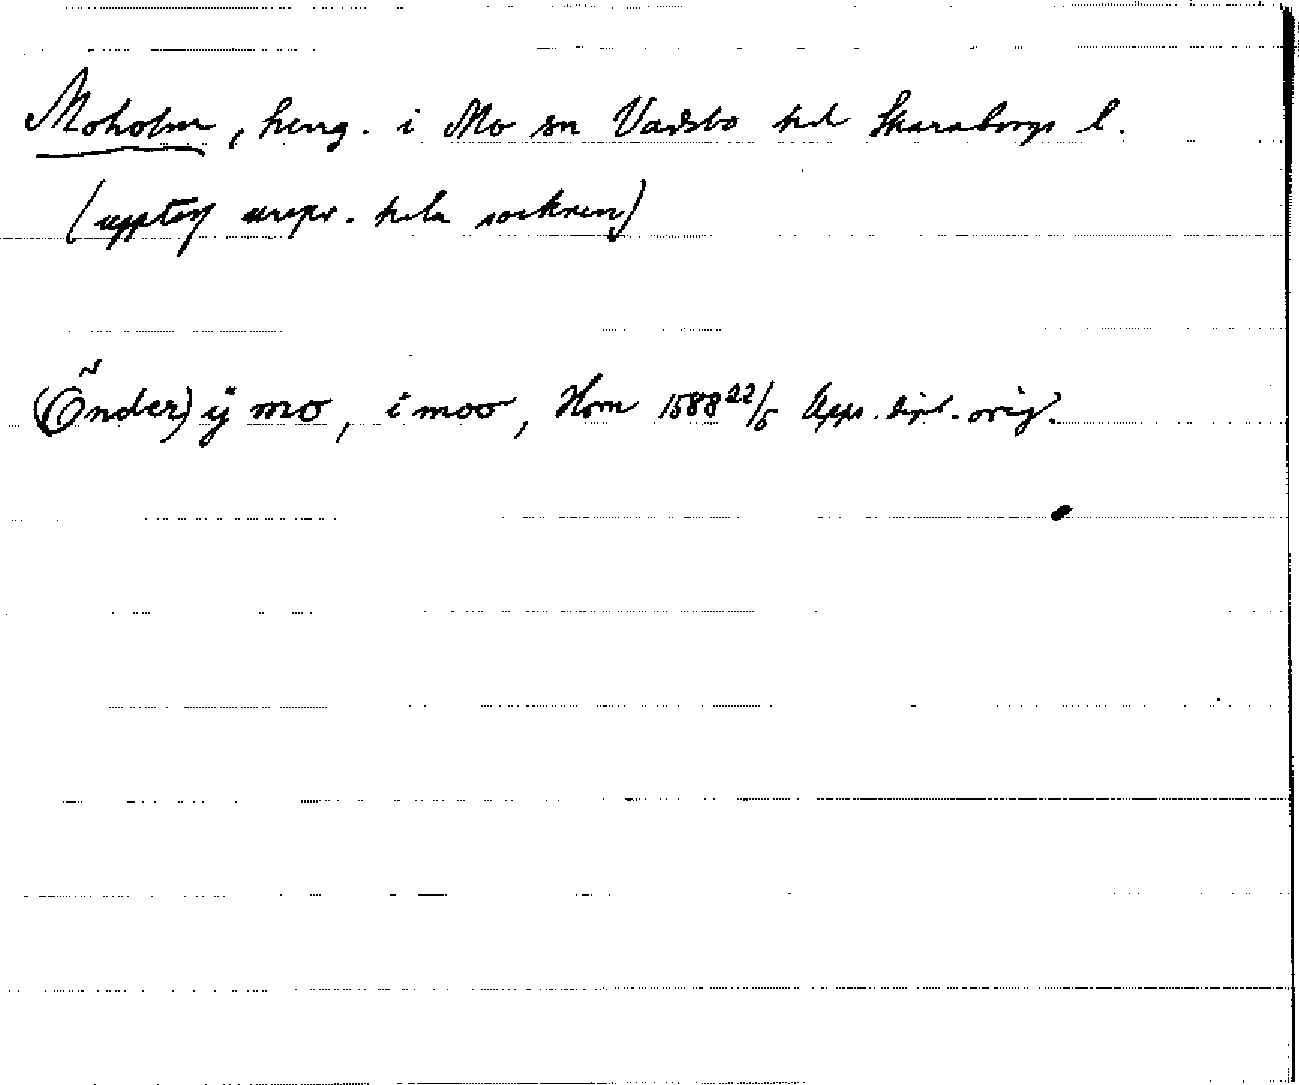 Moholm, herrg. i Mo sn Vadsbo hd Skaraborgs l.
(upptog urspr. hela socknen)
(Õnder) ÿ mo, i moo, Horn 1588 22/5 Upps. dipl. orig.